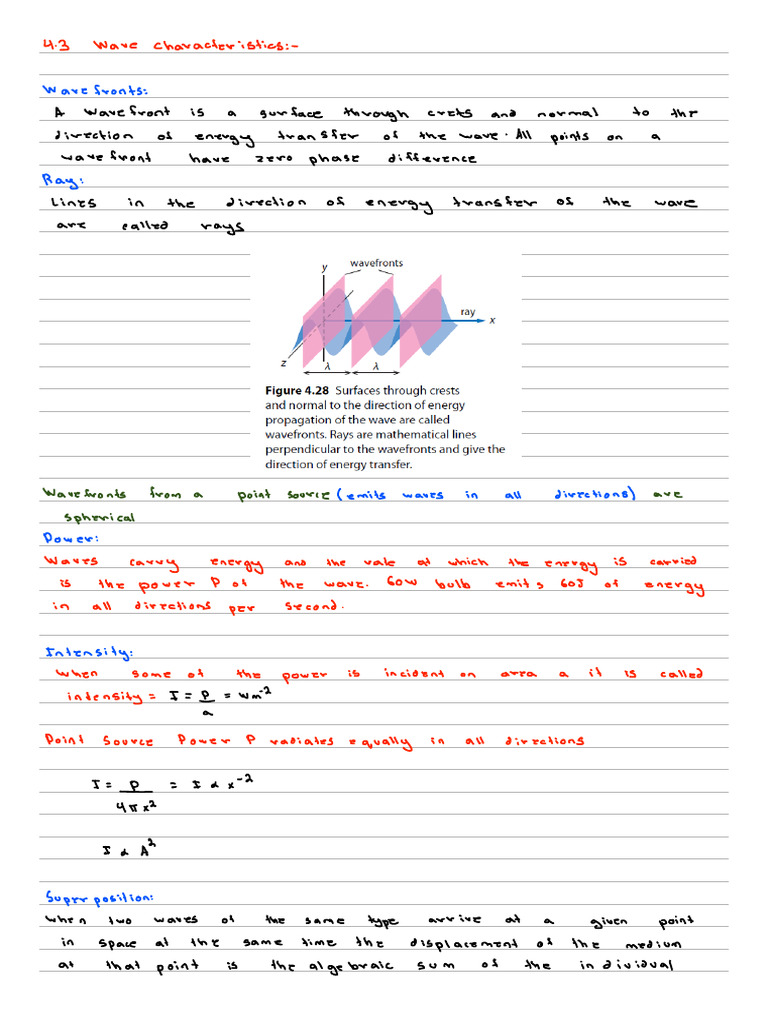 4.3 Wave characteristics:-
Wavefronts:
A wavefront is a surface through crets and normal to the
direction of energy transfer of the wave. All points on a
wavefront have zero phase difference
Ray:
Lines in the direction of energy transfer of the wave
are called rays
y wavefronts
ray
x
z
λ λ
Figure 4.28 Surfaces through crests
and normal to the direction of energy
propagation of the wave are called
wavefronts. Rays are mathematical lines
perpendicular to the wavefronts and give the
direction of energy transfer.
Wavefronts from a point source (emits waves in all directions) are
spherical
Power:
Waves carry energy and the rate at which the energy is carried
is the power P of the wave. 60W bulb emits 60J of energy
in all directions per second.
Intensity:
When some of the power is incident on area a it is called
intensity = I = P/a = Wm⁻²
Point Source Power P radiates equally in all directions
I = P/4πx² = I α x⁻²
I α A²
Superposition:
When two waves of the same type arrive at a given point
in space at the same time the displacement of the medium
at that point is the algebraic sum of the individual